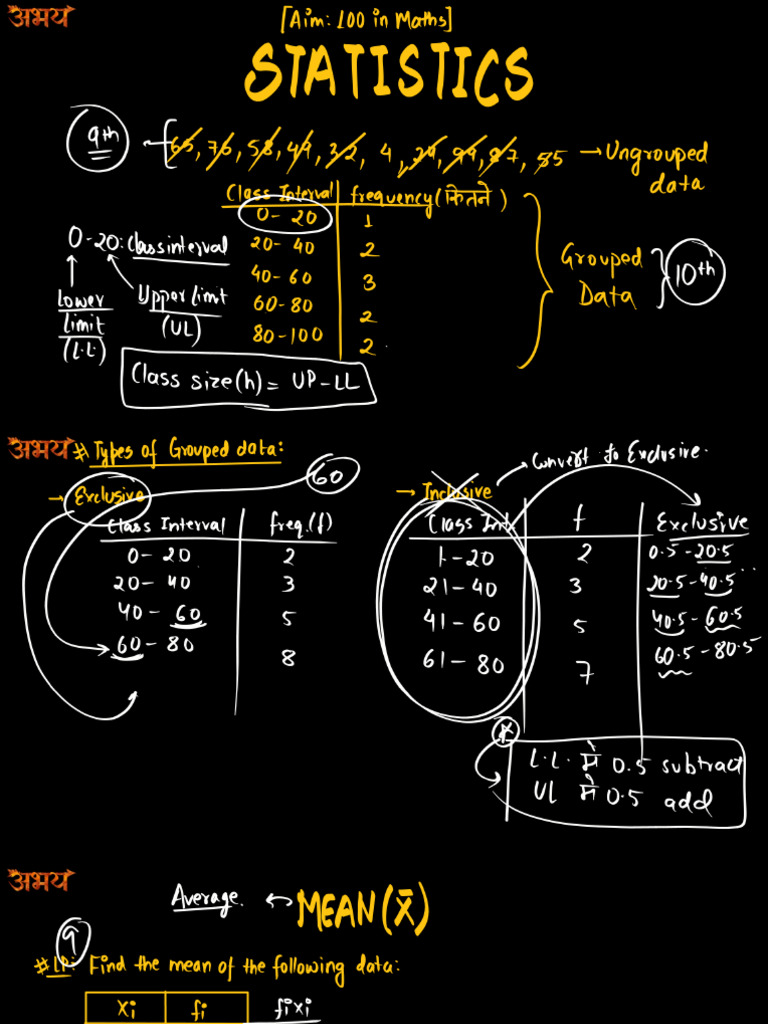 अभय
[Aim: 100 in Maths]
STATISTICS
9th
65, 76, 58, 49, 32, 4, 20, 99, 87, 55 → Ungrouped data
Class Interval | frequency (कितने)
0-20 | 1
20-40 | 2
40-60 | 3
60-80 | 2
80-100 | 2
Grouped Data
10th
0-20: Class interval
Lower limit (L.L)
Upper limit (UL)
Class size (h) = UP - LL
अभय
# Types of Grouped data:
60
→ Exclusive
Class Interval | freq.(f)
0-20 | 2
20-40 | 3
40-60 | 5
60-80 | 8
→ Inclusive → Convert to Exclusive.
Class Int. | f | Exclusive
1-20 | 2 | 0.5-20.5
21-40 | 3 | 20.5-40.5
41-60 | 5 | 40.5-60.5
61-80 | 7 | 60.5-80.5
*
L.L. में 0.5 subtract
UL में 0.5 add
अभय
Average. ↔ MEAN (x̄)
9
# LP: Find the mean of the following data:
xi | fi | fixi